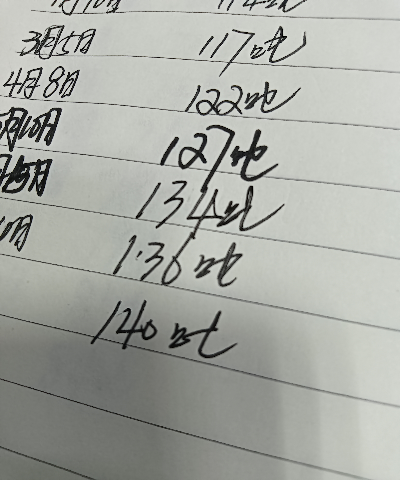 3月5日 117吨
4月8日 122吨
月10日 127吨
134吨
136吨
140吨